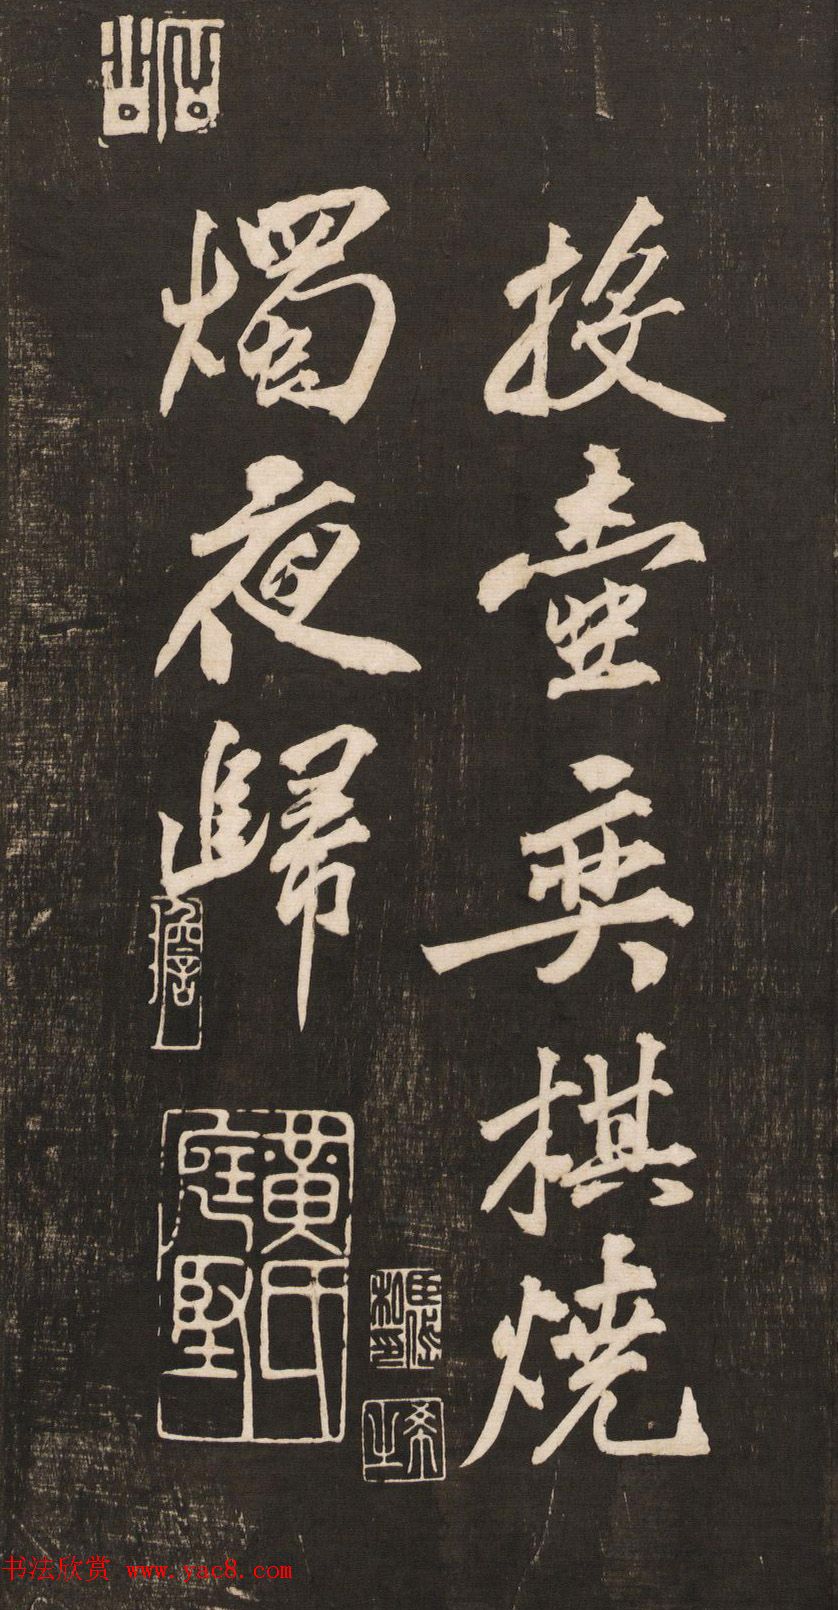 投壺奕棋燒
燭夜歸
黃氏庭堅
书法欣赏 www.yac8.com